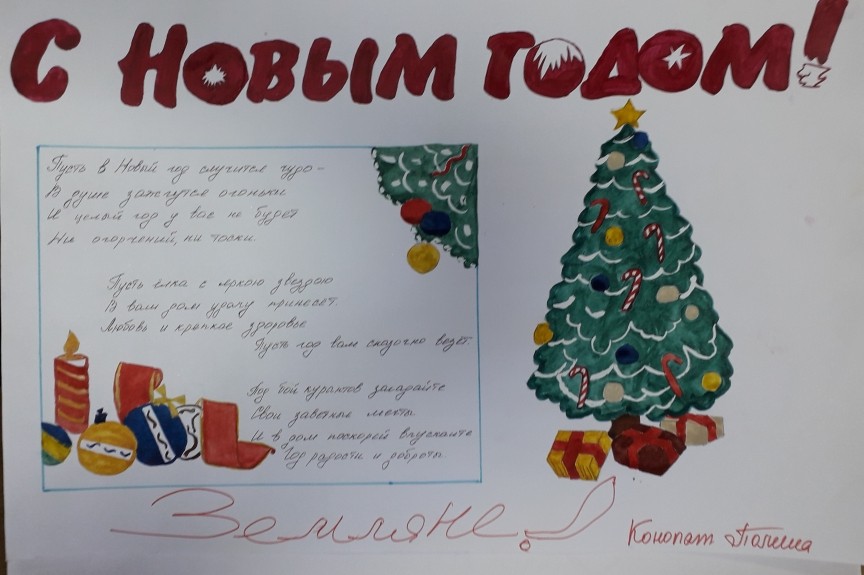 С НОВЫМ ГОДОМ!
Пусть в Новый год случится чудо –
В душе зажгутся огоньки
И целый год у вас не будет
Ни огорчений, ни тоски
Пусть ёлка с яркою звездою
В вам дом удачу принесет.
Любовь и крепкое здоровье
Пусть год вам сказочно везет.
Под бой курантов загадайте
Свои заветные мечты
И в дом поскорей впускайте
Год радости и доброты.
Земляне!
Конопат Полина